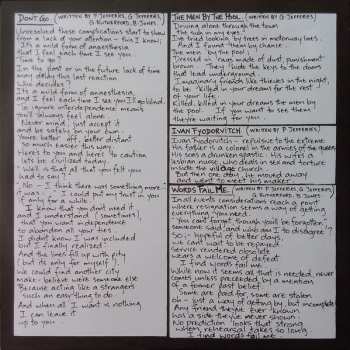 DON'T GO. (WRITTEN BY P. JEFFERIES, G. JEFFERIES,
G. RUTHERFORD, B. JONES)
Unresolved these complications start to show
from a lack of your attention - this I know;
It's a mild form of anaesthesia
that I feel each time I see you
Time to go
in the past or in the future, lack of time
may delay this last reaction
Who decides?
It's a mild form of anaesthesia,
and I feel each time I see you I'll go blind.
To ignore interdependence means
you'll always feel alone
Never mind, just accept it
and be safely on your own -
more better off better distant
so much easier this way.
Here's to you and here's to caution
lets be civilized today.
"Well is that all that you felt you
had to say?"
"No - I think there was something more
it was - I could put my trust in you
if only for a while.
I know that you don't need it
and I understand (sometimes)
that you want independence
to abandon all your ties
I didn't know I was included
but I finally realized
And the lines fill up with pity
( but its only for myself )
We could find another city
make-believe with someone else
Because acting like a strangers
such an easy thing to do
And when all I want is nothing
I can leave it
up to you
THE MEN BY THE POOL. (WRITTEN BY G. JEFFERIES)
Driving alone through the town
The sun in my eyes
I've tried looking by trees in motorway laces.
And I found them by chance.
The men by the pool
Dressed in rags made of dust, punishment
brown. They hide the keys to the doors
that lead underground
Imaginary friends like thieves in the night,
to be killed in your dreams for the rest
of your life.
Killed, killed in your dreams the men
by the pool. If you want to see them
they're waiting for you.
IVAN FYODORVITCH (WRITTEN BY P. JEFFERIES)
Ivan Fyodorvitch - repulsive to the extreme
His father is a colonel in the armies of the queens
His son a drunken ghostie. His wife is a
lesbian nurse, who deals in sex and torture
inside the village church
But then one day, He moved away
and went to meet his maker
WORDS FAIL ME. (WRITTEN BY P. JEFFERIES, G. JEFFERIES,
G. RUTHERFORD, B. JONES)
In all events considerations reach a point
where resignation seems a way of getting
everything you need.
You can't forget though you'll be forgotten
someone said and who am I to disagree?
So - hopeful of better days
we can't wait to be repaid
service rewards obsolete
wears a welcome of defeat
I find words fail me
While now it seems all that is needed, never
comes unless preceded by a mention
of a former past belief
Some are good for, some are stolen
oh - just a way of getting by but incomplete
Any friend they've ever known
has a side they've never shown
No prediction looks that strong
when rehearsal takes so long
I find words fail me